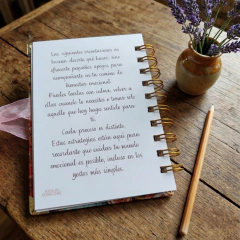 Las siguientes orientaciones no
buscan decirte qué hacer, sino
ofrecerte pequeños apoyos para
acompañarte en tu camino de
bienestar emocional.
Puedes leerlas con calma, volver a
ellas cuando lo necesites o tomar solo
aquello que hoy tenga sentido para
ti.
Cada proceso es distinto.
Estas estrategias están aquí para
recordarte que cuidar tu mundo
emocional es posible, incluso en los
gestos más simples.